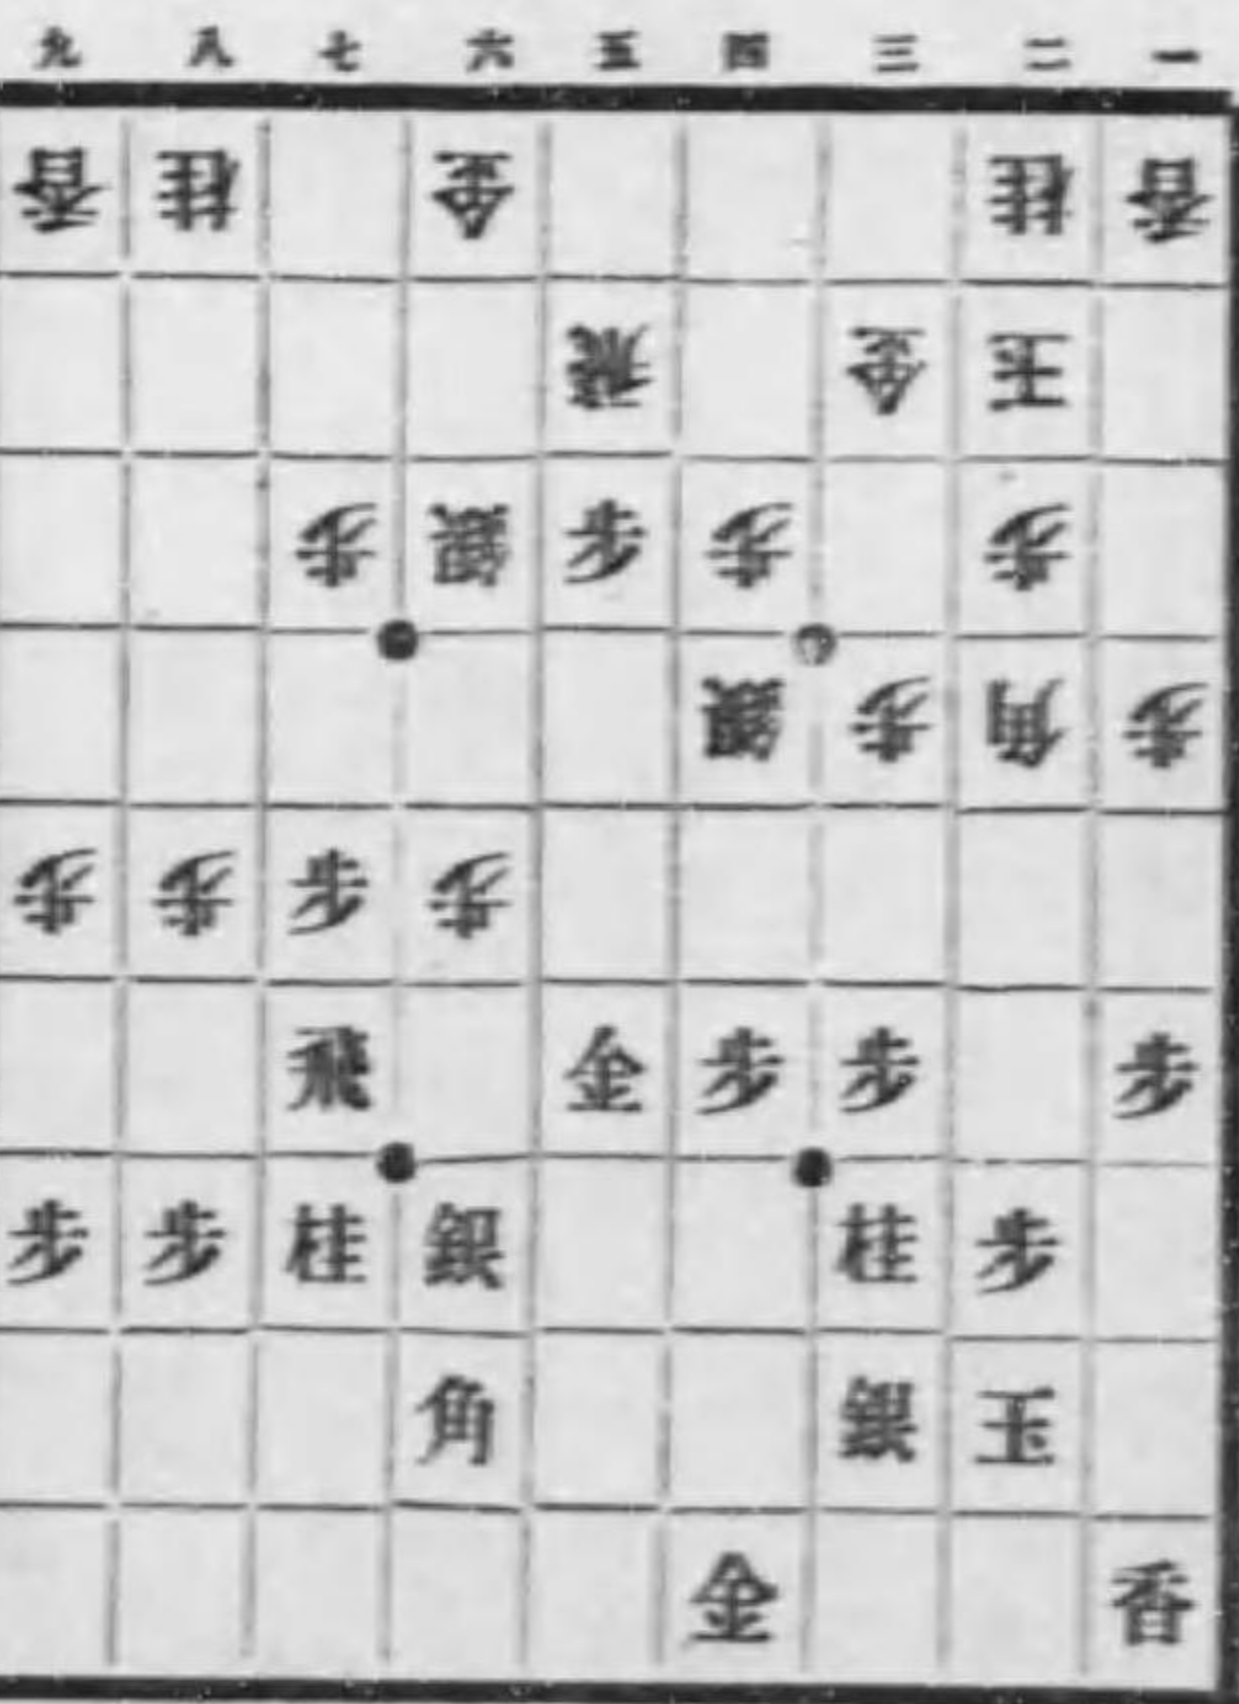 九 八 七 六 五 四 三 二 一
香 桂 金 桂 香
飛 金 玉
歩 銀 歩 歩 歩
銀 歩 角 歩
歩 歩 歩 歩
飛 金 歩 歩 歩
歩 歩 桂 銀 桂 歩
角 銀 玉
金 香